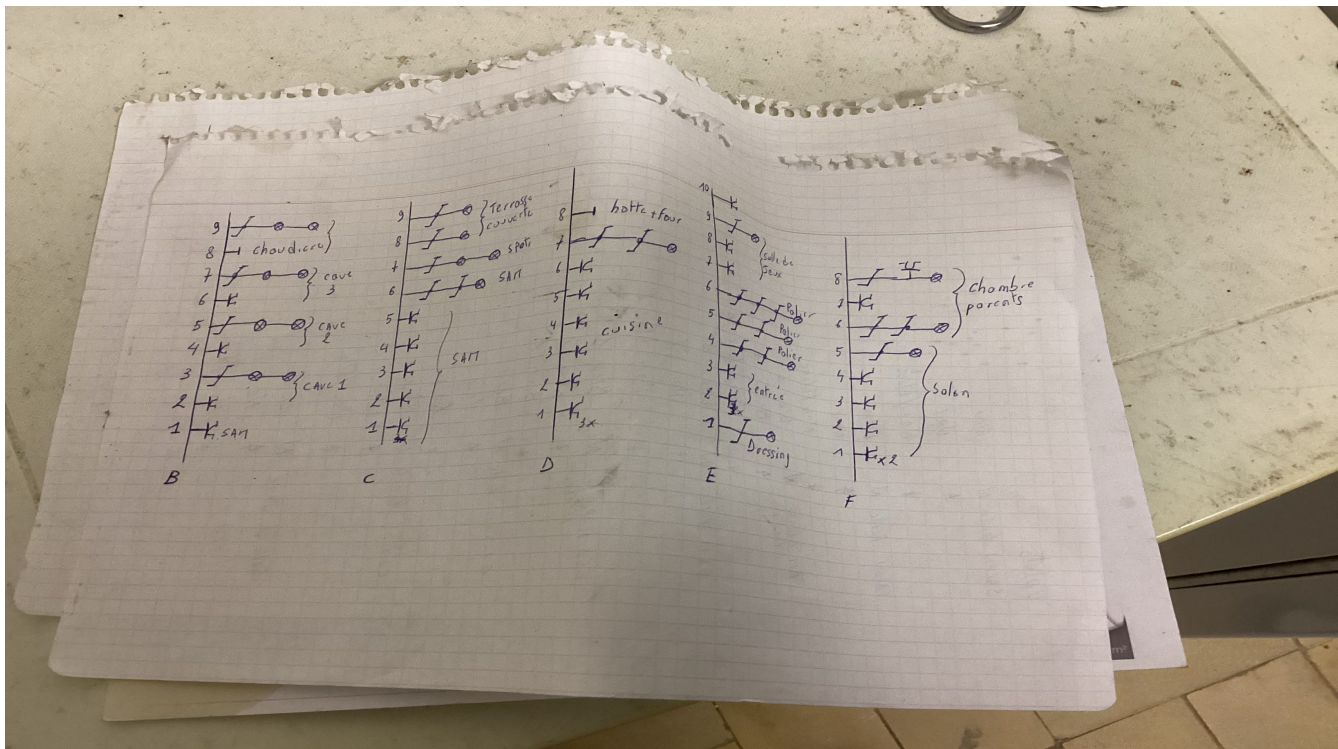 9
8 chaudière
7
cave
3
6
5
cave
2
4
3
CAVE 1
2
1 SAM
B
9
Terrasse
couverte
8
7 SPOTS
6 SAM
5
4
3
SAM
2
1
C
8 hotte + four
7
6
5
4
cuisine
3
2
1 3x
D
10
9
8
Salle de
Jeux
7
6 Palier
5 Palier
4 Palier
3
entrée
2
1
Dressing
E
8
Chambre
parents
7
6
5
4
Salon
3
2
1 x2
F